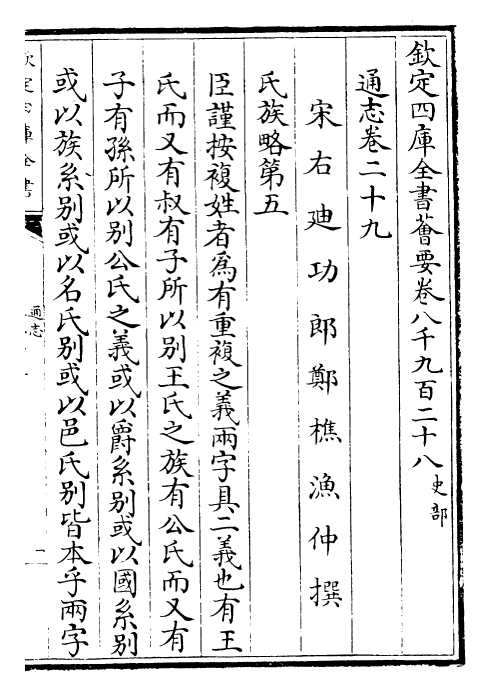 欽定四庫全書薈要卷八千九百二十八 史部
通志卷二十九
宋右迪功郎鄭樵漁仲撰
氏族略第五
臣謹按複姓者為有重複之義兩字具二義也有王
氏而又有叔有子所以別王氏之族有公氏而又有
子有孫所以別公氏之義或以爵系別或以國系別
或以族系別或以名氏別或以邑氏別皆本乎兩字
欽定四庫全書
通志